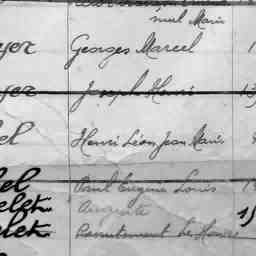 mul Marie
yer Georges Marcel 1
yer Joseph Henri 13
el Henri Léon Jean Marie
el Paul Eugène Louis 1
elet Auguste 15
elet Recrutement Le Havre